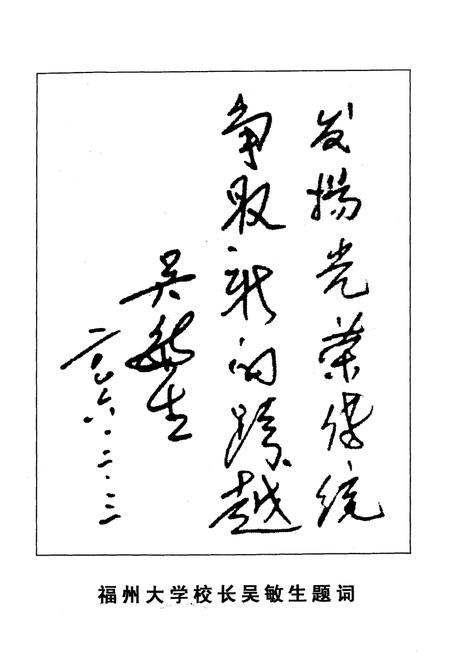 发揚光荣传统
争取新的跨越
吴敏生
二〇〇六.二.二
福州大学校长吴敏生题词